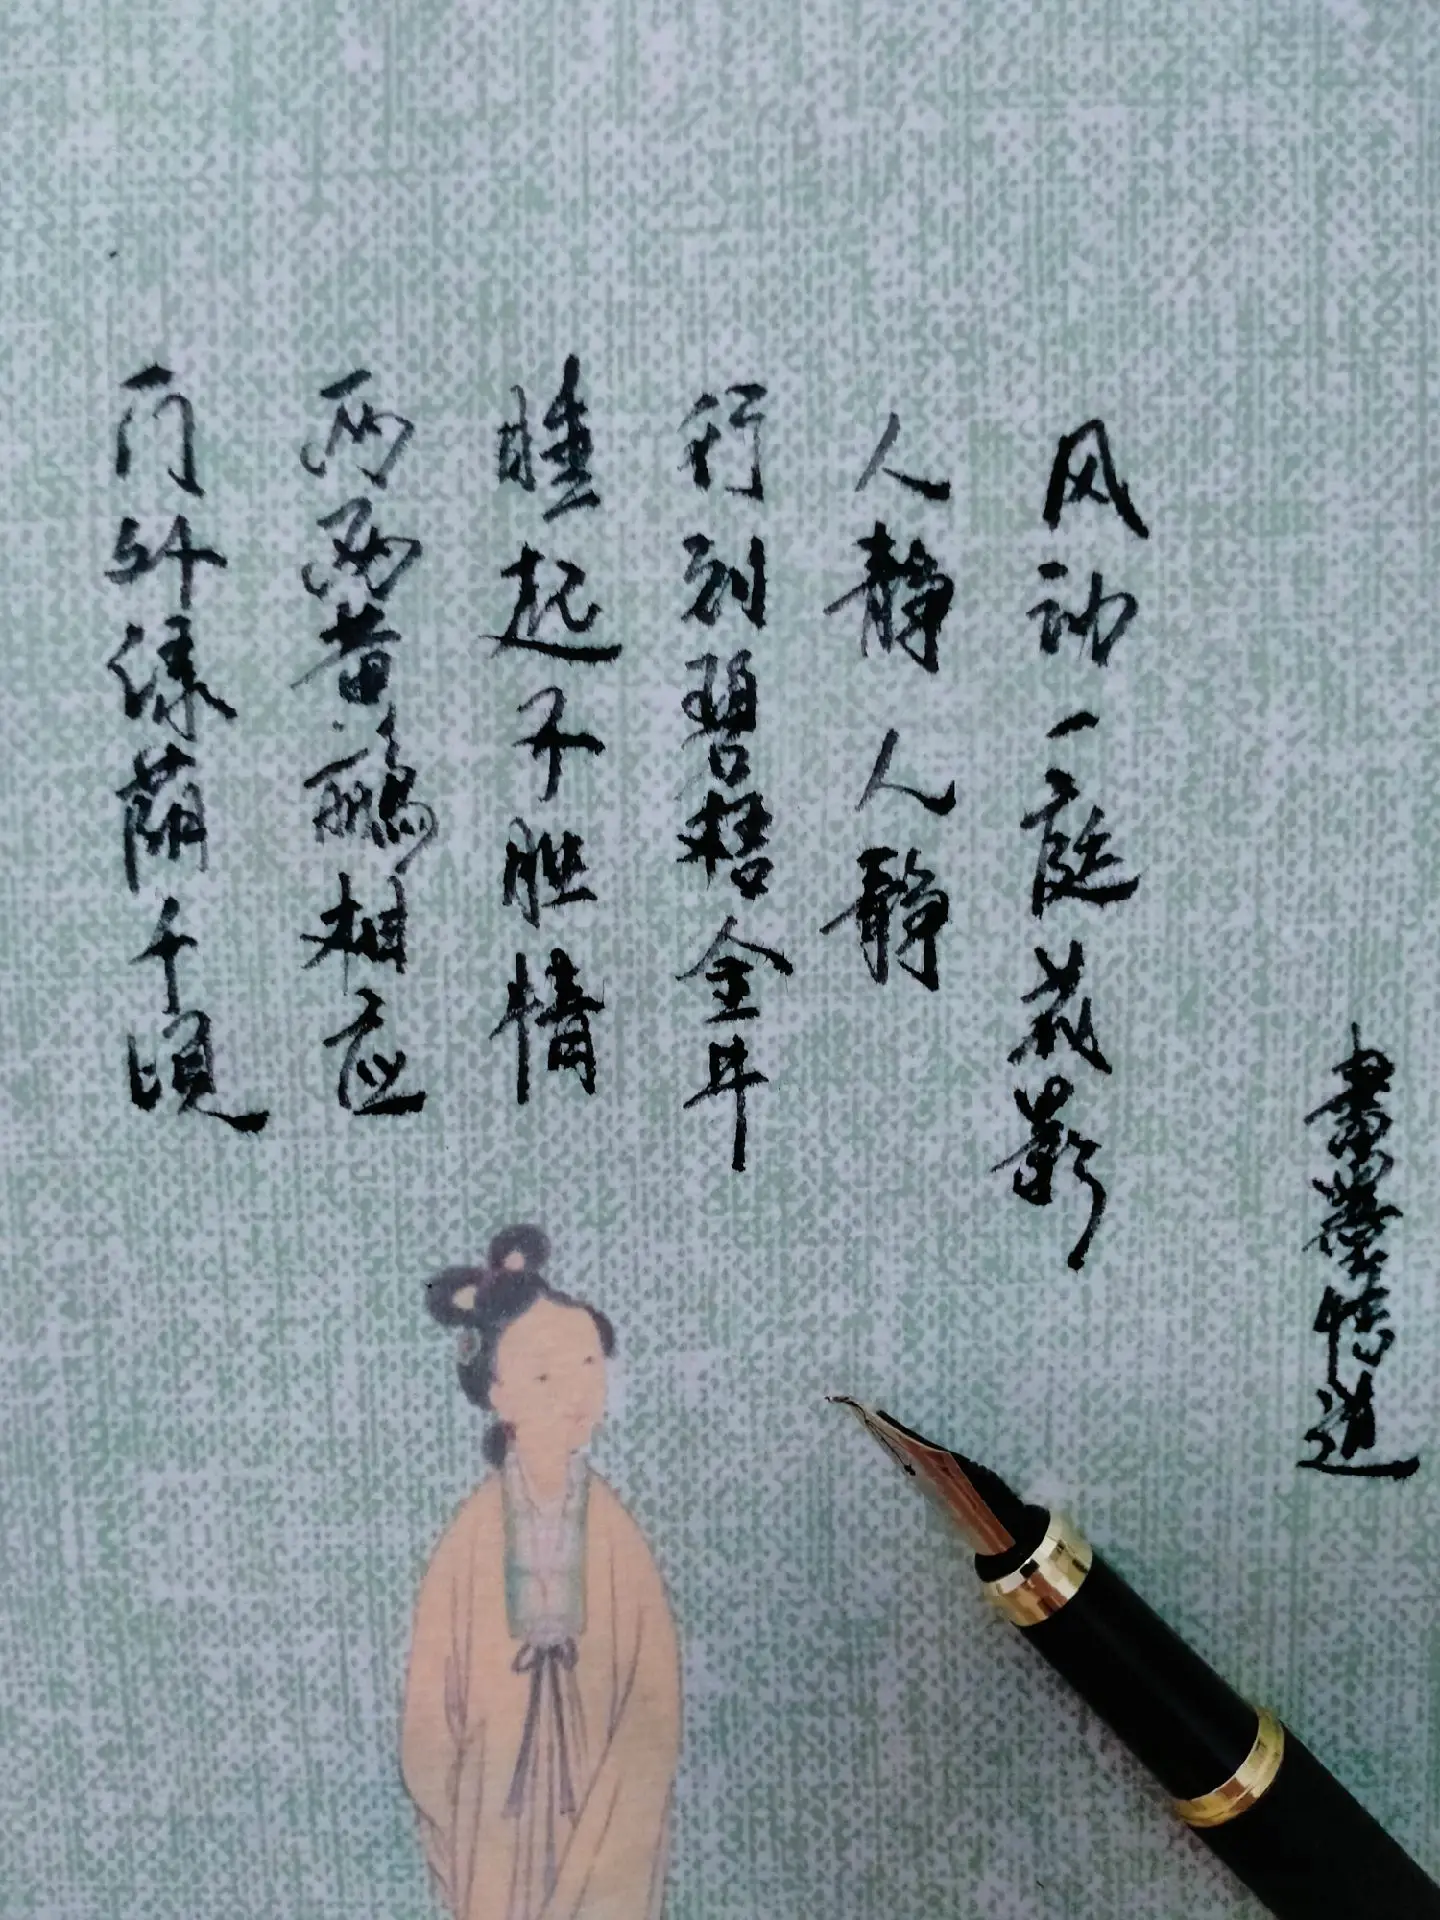 门外绿荫千顷
两两黄鹂相应
睡起不胜情
行到碧梧金井
人静人静
风动一庭花影